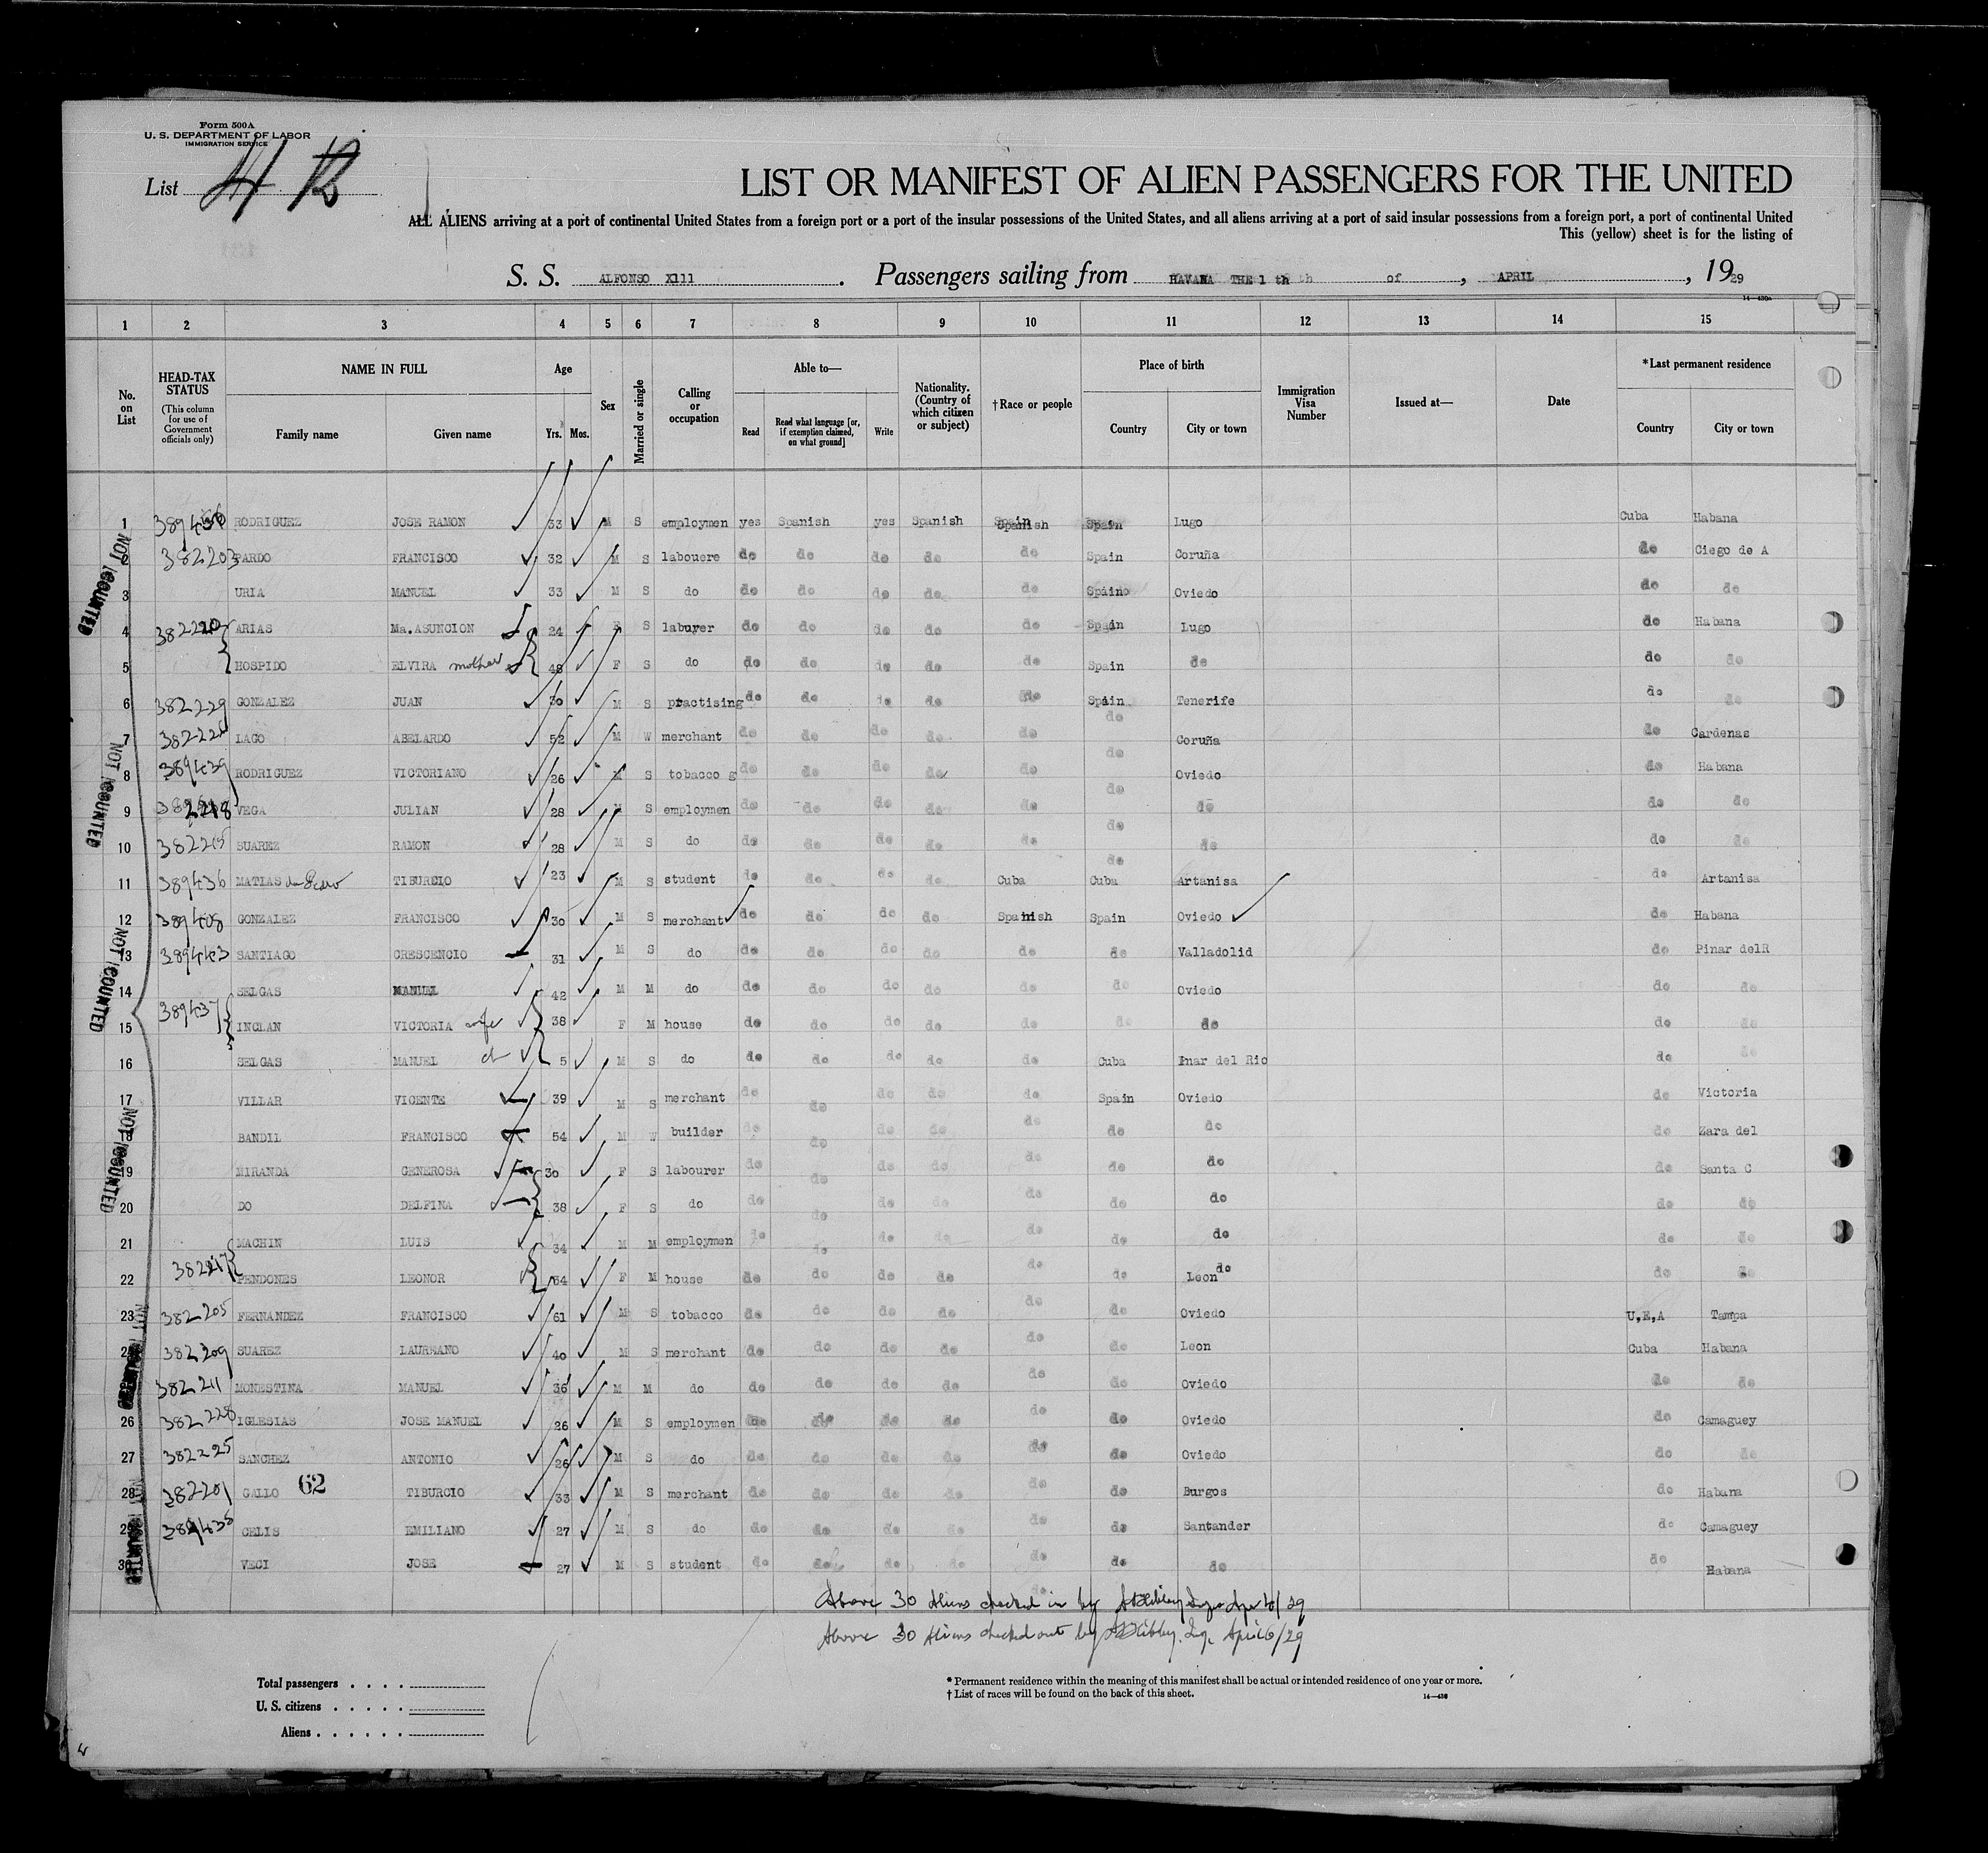 Form 500A
U. S. DEPARTMENT OF LABOR
IMMIGRATION SERVICE
List 4
LIST OR MANIFEST OF ALIEN PASSENGERS FOR THE UNITED
ALL ALIENS arriving at a port of continental United States from a foreign port or a port of the insular possessions of the United States, and all aliens arriving at a port of said insular possessions from a foreign port, a port of continental United
This (yellow) sheet is for the listing of
S. S. ALFONSO X111 . Passengers sailing from HAVANA THE 1 th of , APRIL , 1929
14—430A
1 2 3 4 5 6 7 8 9 10 11 12 13 14 15
No. on List
HEAD-TAX STATUS (This column for use of Government officials only)
NAME IN FULL Family name Given name
Age Yrs. Mos.
Sex
Married or single
Calling or occupation
Able to— Read Read what language [or, if exemption claimed, on what ground] Write
Nationality. (Country of which citizen or subject)
†Race or people
Place of birth Country City or town
Immigration Visa Number
Issued at—
Date
*Last permanent residence Country City or town
1 RODRIGUEZ JOSE RAMON 33 M S employmen yes Spanish yes Spanish Spanish Spain Lugo Cuba Habana
2 382203 PARDO FRANCISCO 32 M S labouere do do do do do Spain Coruña do Ciego de A
3 URIA MANUEL 33 M S do do do do do do Spain Oviedo do do
4 382220 ARIAS Ma.ASUNCION 24 F S labuyer do do do do do Spain Lugo do Habana
5 HOSPIDO ELVIRA mother 48 F S do do do do do do Spain do do do
6 382229 GONZALEZ JUAN 30 M S practising do do do do do Spain Tenerife do do
7 LAGO ABELARDO 52 M W merchant do do do do do do Coruña do Cardenas
8 389439 RODRIGUEZ VICTORIANO 26 M S tobacco g do do do do do do Oviedo do Habana
9 VEGA JULIAN 28 M S employmen do do do do do do do do
10 382215 SUAREZ RAMON 28 M S do do do do do do do do do do
11 389436 MATIAS TIBURCIO 23 M S student do do do do Cuba Cuba Artanisa do Artanisa
12 389408 GONZALEZ FRANCISCO 30 M S merchant do do do do Spanish Spain Oviedo do Habana
13 389443 SANTIAGO CRESCENCIO 31 M S do do do do do do do Valladolid do Pinar delR
14 SELGAS MANUEL 42 M M do do do do do do do Oviedo do do
15 389437 INCLAN VICTORIA wife 38 F M house do do do do do do do do do
16 SELGAS MANUEL ch 5 M S do do do do do do Cuba Inar del Rio do do
17 VILLAR VICENTE 39 M S merchant do do do do do Spain Oviedo do Victoria
18 BANDIL FRANCISCO 54 M W builder do do do do do do do do Zara del
19 MIRANDA GENEROSA 30 F S labourer do do do do do do do do Santa C
20 DO DELFINA 38 F S do do do do do do do do do do
21 MACHIN LUIS 34 M M employmen do do do do do do do do do
22 PENDONES LEONOR 64 F M house do do do do do do Leon do do do
23 382205 FERNANDEZ FRANCISCO 61 M S tobacco do do do do do do Oviedo U,E,A Tampa
24 382209 SUAREZ LAUREANO 40 M S merchant do do do do do do Leon Cuba Habana
382211 MONESTINA MANUEL 36 M M do do do do do do do Oviedo do do
26 382228 IGLESIAS JOSE MANUEL 26 M S employmen do do do do do do Oviedo do Camaguey
27 382225 SANCHEZ ANTONIO 26 M S do do do do do do do Oviedo do do
28 382201 GALLO 62 TIBURCIO 33 M S merchant do do do do do do Burgos do Habana
29 CELIS EMILIANO 27 M S do do do do do do do Santander do Camaguey
30 VECI JOSE 27 M S student do do do do do do do do Habana
NOT COUNTED
NOT COUNTED
NOT COUNTED
NOT COUNTED
NOT COUNTED
NOT COUNTED
Above 30 Aliens checked in by
Above 30 Aliens checked out by
Total passengers . . . .
U. S. citizens . . . . .
Aliens . . . . . .
* Permanent residence within the meaning of this manifest shall be actual or intended residence of one year or more.
† List of races will be found on the back of this sheet.
14—430